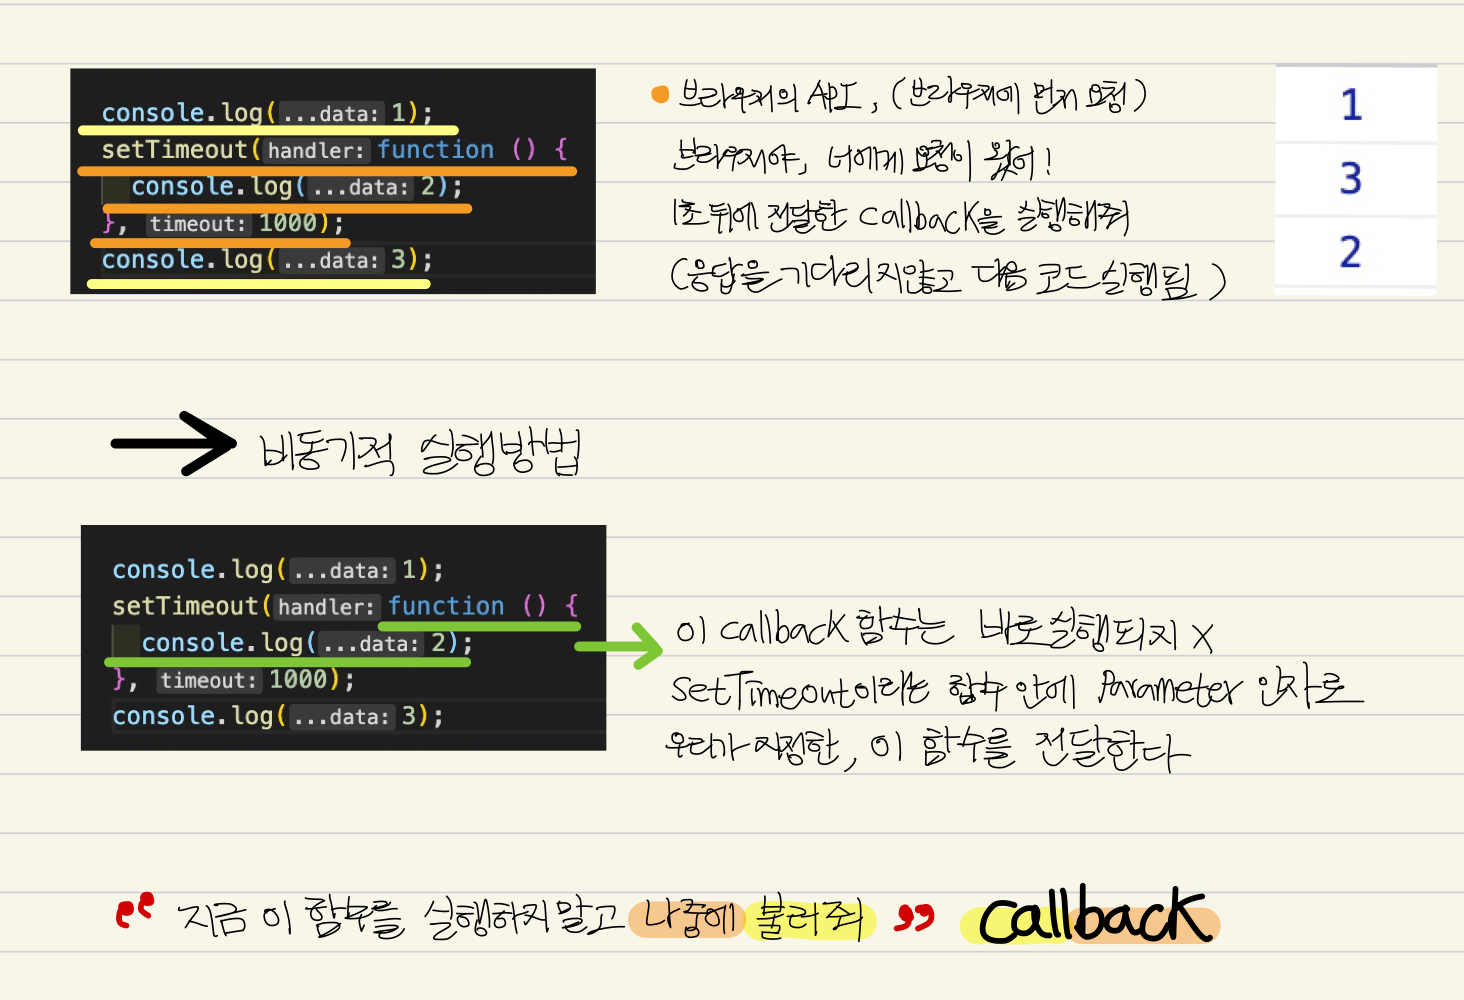 console.log(...data: 1);
setTimeout(handler: function () {
console.log(...data: 2);
}, timeout: 1000);
console.log(...data: 3);
브라우저의 API, (브라우저에 먼저 요청)
브라우저야, 너에게 요청이 왔어!
1초 뒤에 전달한 callback을 실행해줘
(응답을 기다리지않고 다음 코드 실행됨)
1
3
2
비동기적 실행방법
console.log(...data: 1);
setTimeout(handler: function () {
console.log(...data: 2);
}, timeout: 1000);
console.log(...data: 3);
이 callback 함수는 바로실행되지 X
SetTimeout이라는 함수 안에 Parameter 인자로
우리가 지정한, 이 함수를 전달한다
“ 지금 이 함수를 실행하지말고 나중에 불러줘 ” callback